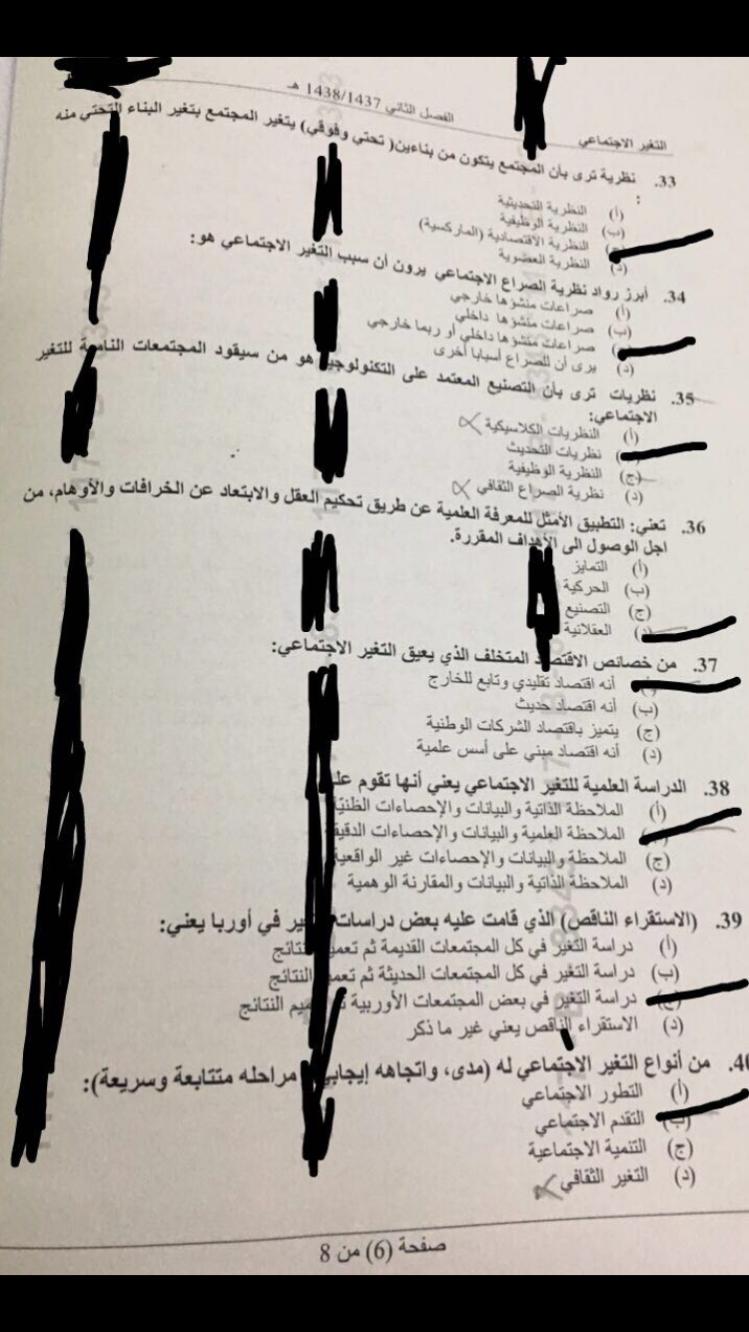 الفصل الثاني 1438/1437 هـ
التغير الاجتماعي
33. نظرية ترى بأن المجتمع يتكون من بناءين( تحتي وفوقي) يتغير المجتمع بتغير البناء التحتي منه
:
(أ) النظرية التحديثية
(ب) النظرية الوظيفية
(ج) النظرية الاقتصادية (الماركسية)
(د) النظرية العضوية
34. أبرز رواد نظرية الصراع الاجتماعي يرون أن سبب التغير الاجتماعي هو:
(أ) صراعات منشؤها خارجي
(ب) صراعات منشؤها داخلي
صراعات منشؤها داخلي أو ربما خارجي
(د) يرى أن للصراع أسبابا أخرى
35. نظريات ترى بأن التصنيع المعتمد على التكنولوجيا هو من سيقود المجتمعات النامية للتغير
الاجتماعي:
(أ) النظريات الكلاسيكية
نظريات التحديث
(ج) النظرية الوظيفية
(د) نظرية الصراع الثقافي
36. تعني: التطبيق الأمثل للمعرفة العلمية عن طريق تحكيم العقل والابتعاد عن الخرافات والأوهام، من
اجل الوصول الى الأهداف المقررة.
(أ) التمايز
(ب) الحركية
(ج) التصنيع
(د) العقلانية
37. من خصائص الاقتصاد المتخلف الذي يعيق التغير الاجتماعي:
أنه اقتصاد تقليدي وتابع للخارج
(ب) أنه اقتصاد حديث
(ج) يتميز باقتصاد الشركات الوطنية
(د) أنه اقتصاد مبني على أسس علمية
38. الدراسة العلمية للتغير الاجتماعي يعني أنها تقوم
(أ) الملاحظة الذاتية والبيانات والإحصاءات الظنية
الملاحظة العلمية والبيانات والإحصاءات
(ج) الملاحظة والبيانات والإحصاءات غير الواقعية
(د) الملاحظة الذاتية والبيانات والمقارنة الوهمية
39. (الاستقراء الناقص) الذي قامت عليه بعض دراسات في أوربا يعني:
(أ) دراسة التغير في كل المجتمعات القديمة ثم
(ب) دراسة التغير في كل المجتمعات الحديثة ثم النتائج
(ج) دراسة التغير في بعض المجتمعات الأوربية النتائج
(د) الاستقراء الناقص يعني غير ما ذكر
40. من أنواع التغير الاجتماعي له (مدى، واتجاهه مراحله متتابعة وسريعة):
(أ) التطور الاجتماعي
(ب) التقدم الاجتماعي
(ج) التنمية الاجتماعية
(د) التغير الثقافي
صفحة (6) من 8